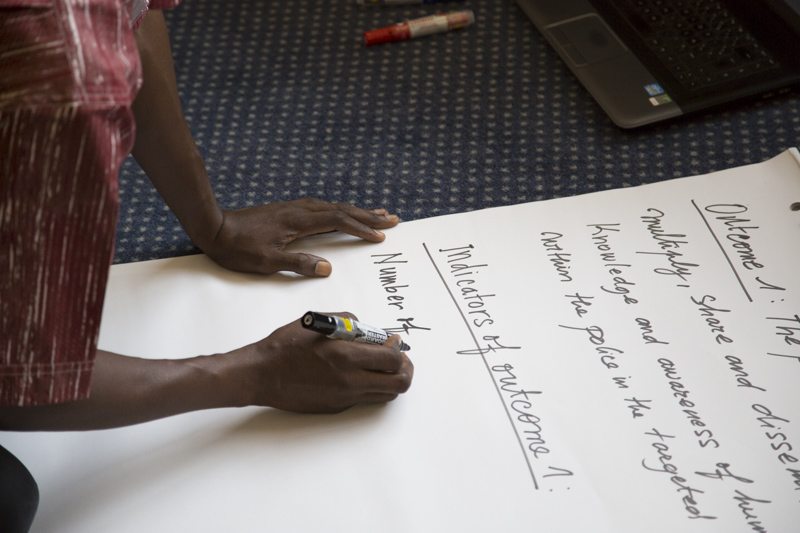 Outcome 1: The P
multiply, share and dissem
Knowledge and awareness of hum
within the police in the targeted
Indicators of outcome 1:
Number of